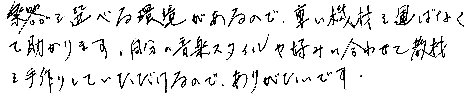 楽器を選べる環境があるので、重い機材を運ばなく
て助かります。自分の音楽スタイルや好みに合わせて教材
を手作りしていただけるので、ありがたいです。